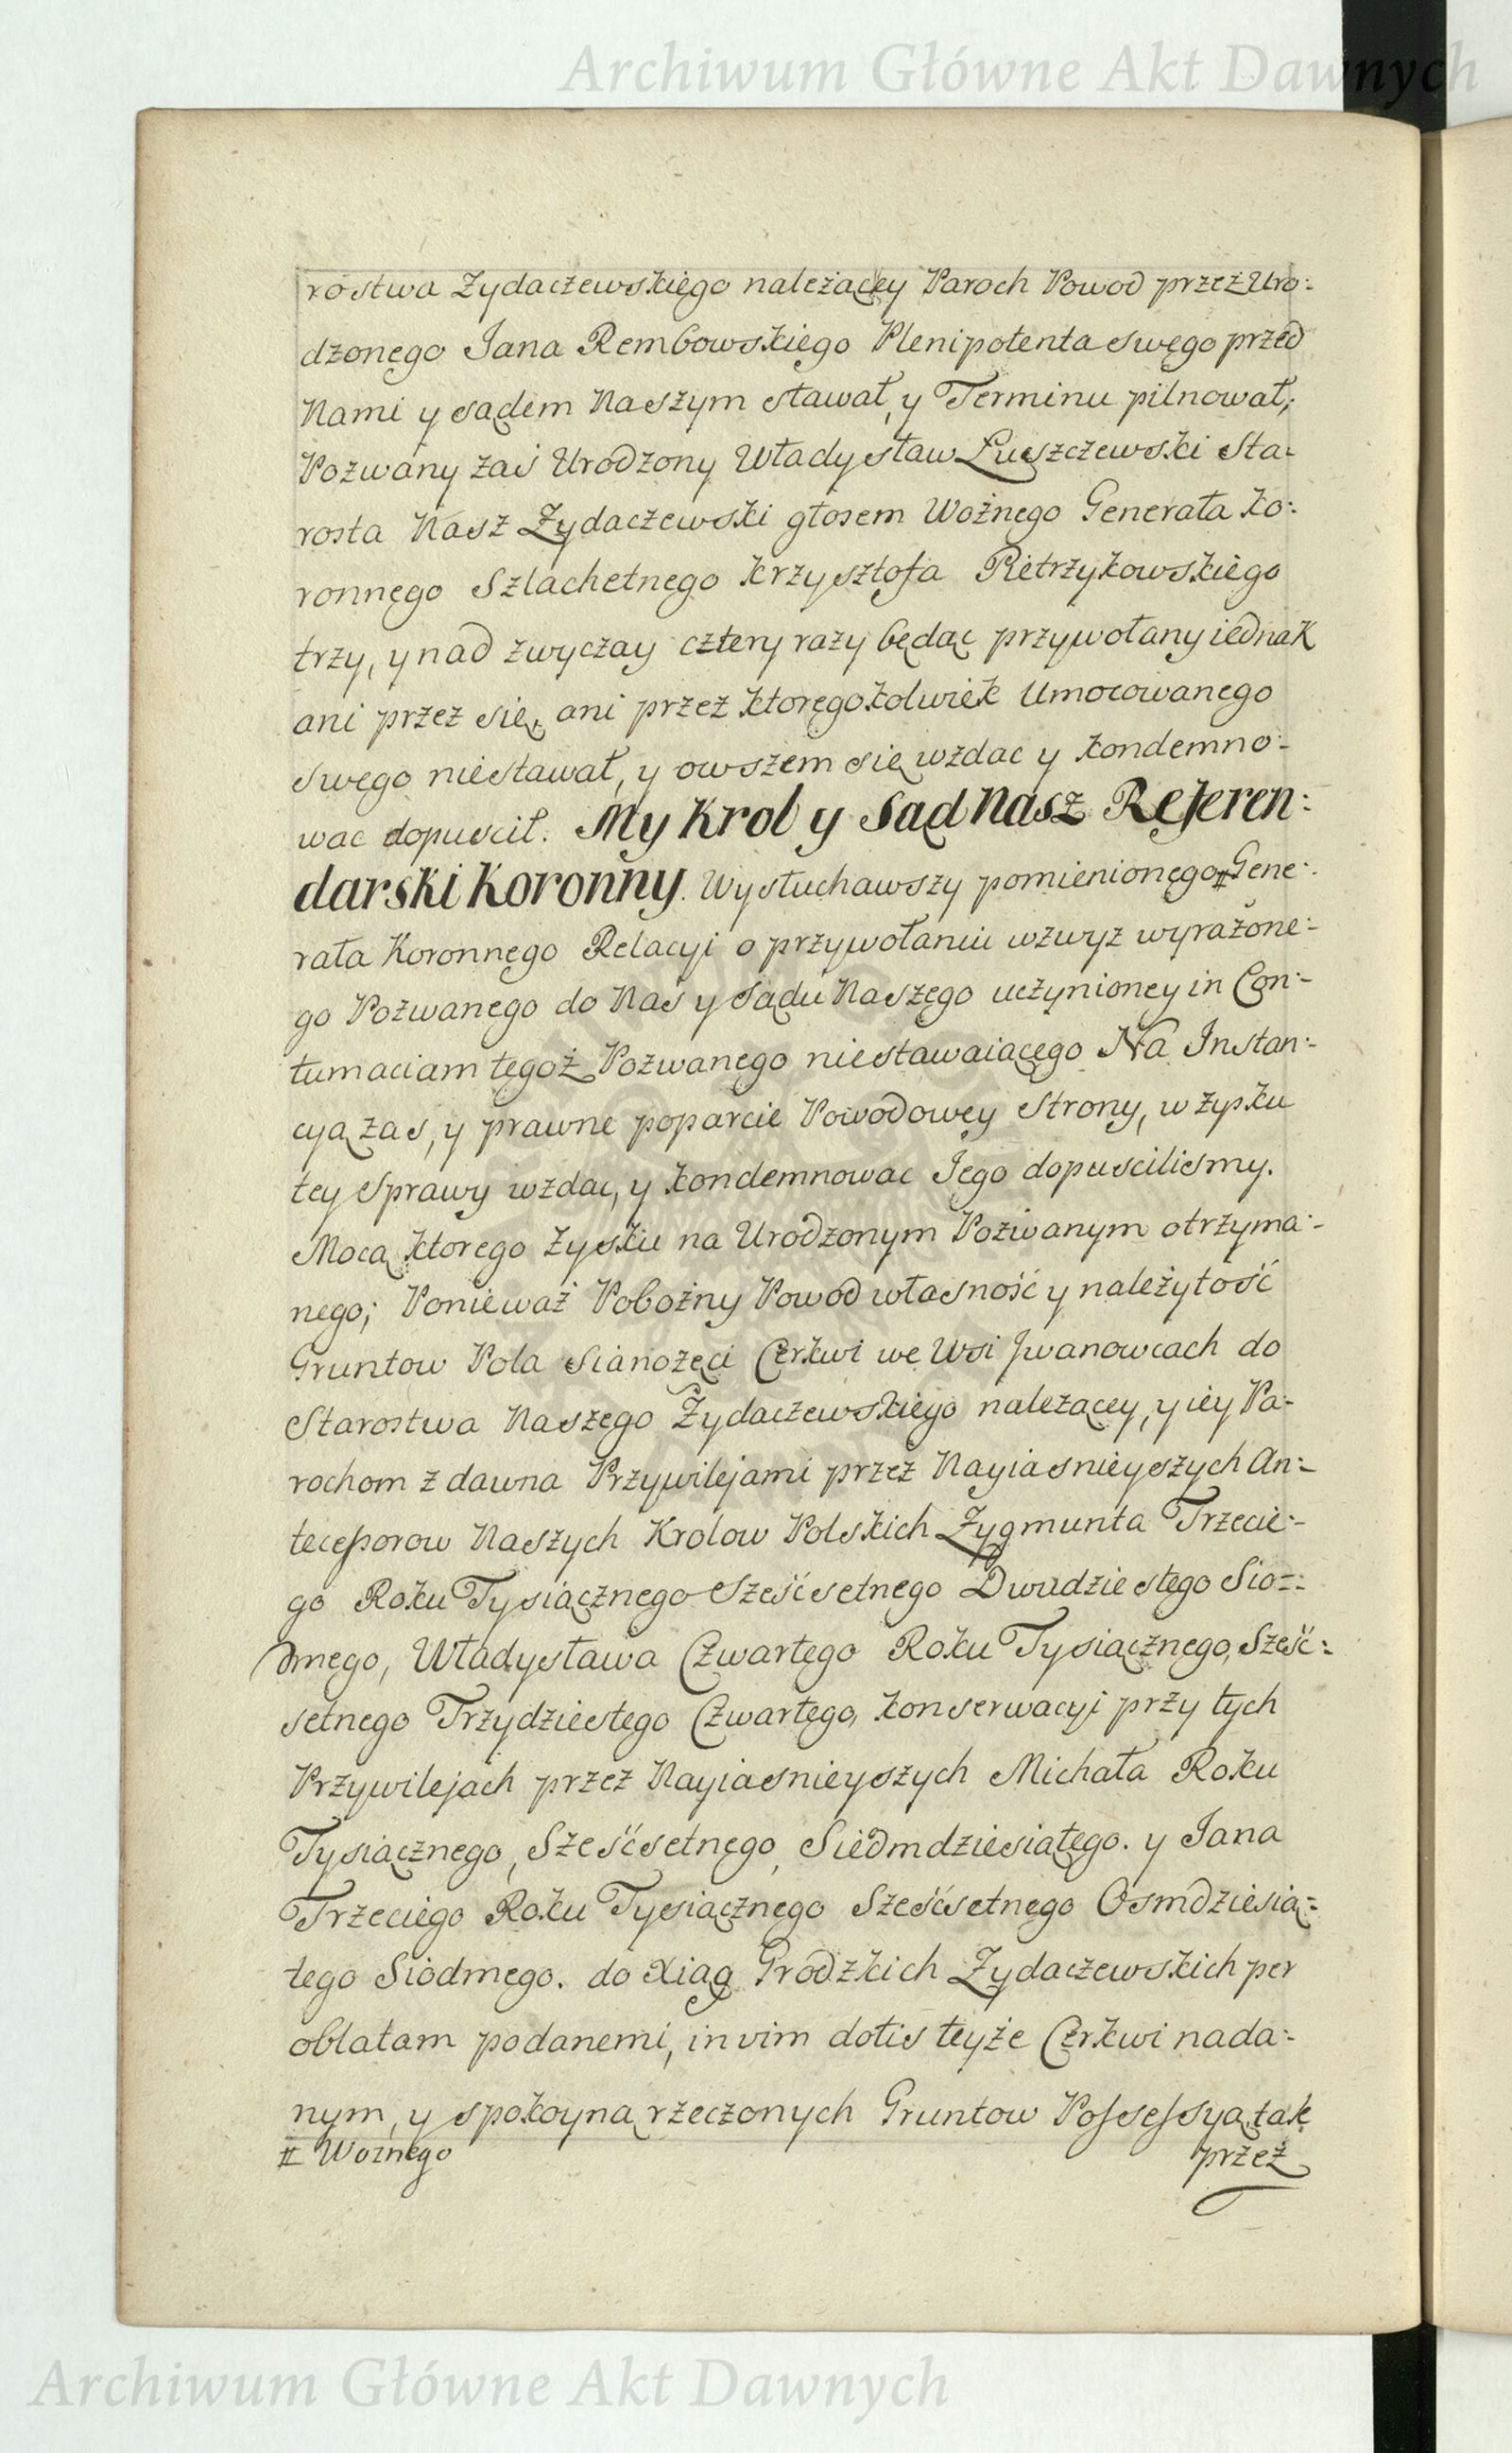 Archiwum Główne Akt Dawnych
rostwa Zydaczewskiego należącey Paroch Powod przez Uro:
dzonego Jana Rembowskiego Plenipotenta swego przed
Nami y sądem Naszym stawał, y Terminu pilnował;
Pozwany zaś Urodzony Władysław Łuszczewski Sta-
rosta Nasz Zydaczewski głosem Woźnego Generała Ko:
ronnego Szlachetnego Krzysztofa Pietrzykowskiego
trzy, y nad zwyczay cztery razy będąc przywołany iednak
ani przez się, ani przez ktoregokolwiek Umocowanego
swego niestawał, y owszem się wzdac y kondemno-
wac dopuscił. My Krol y Sąd Nasz Referen:
darski Koronny. Wysłuchawszy pomienionego # Gene:
rała Koronnego Relacyi o przywołaniu wzwyz wyrażone:
go Pozwanego do Nas y Sądu Naszego uczynioney in Con:
tumaciam tegoż Pozwanego niestawaiącego Na Instan:
cyą zas, y prawne poparcie Powodowey Strony, w zysku
tey Sprawy wzdac, y kondemnowac Jego dopuscilismy.
Mocą ktorego zysku na Urodzonym Pozwanym otrzyma:
nego; Ponieważ Pobożny Powod własność y należytość
Gruntow Pola Sianozęci Cerkwi we Wsi Jwanowcach do
Starostwa Naszego Zydaczewskiego należącey, y iey Pa-
rochom z dawna Przywilejami przez Nayiasnieyszych An:
tecessorow Naszych Krolow Polskich Zygmunta Trzecie:
go Roku Tysiącznego Sześćsetnego Dwudziestego Sio=:
dmego, Władysława Czwartego Roku Tysiącznego, Sześć:
setnego Trzydziestego Czwartego, konserwacyi przy tych
Przywilejach przez Nayiasnieyszych Michała Roku
Tysiącznego, Sześćsetnego, Siedmdziesiątego. y Jana
Trzeciego Roku Tysiącznego Sześćsetnego Osmdziesią:
tego Siodmego. do Xiąg Grodzkich Zydaczewskich per
oblatam podanemi, in vim dotis teyże Cerkwi nada:
nym, y spokoyną rzeczonych Gruntow Possessyą, tak
# Woznego przez
Archiwum Główne Akt Dawnych